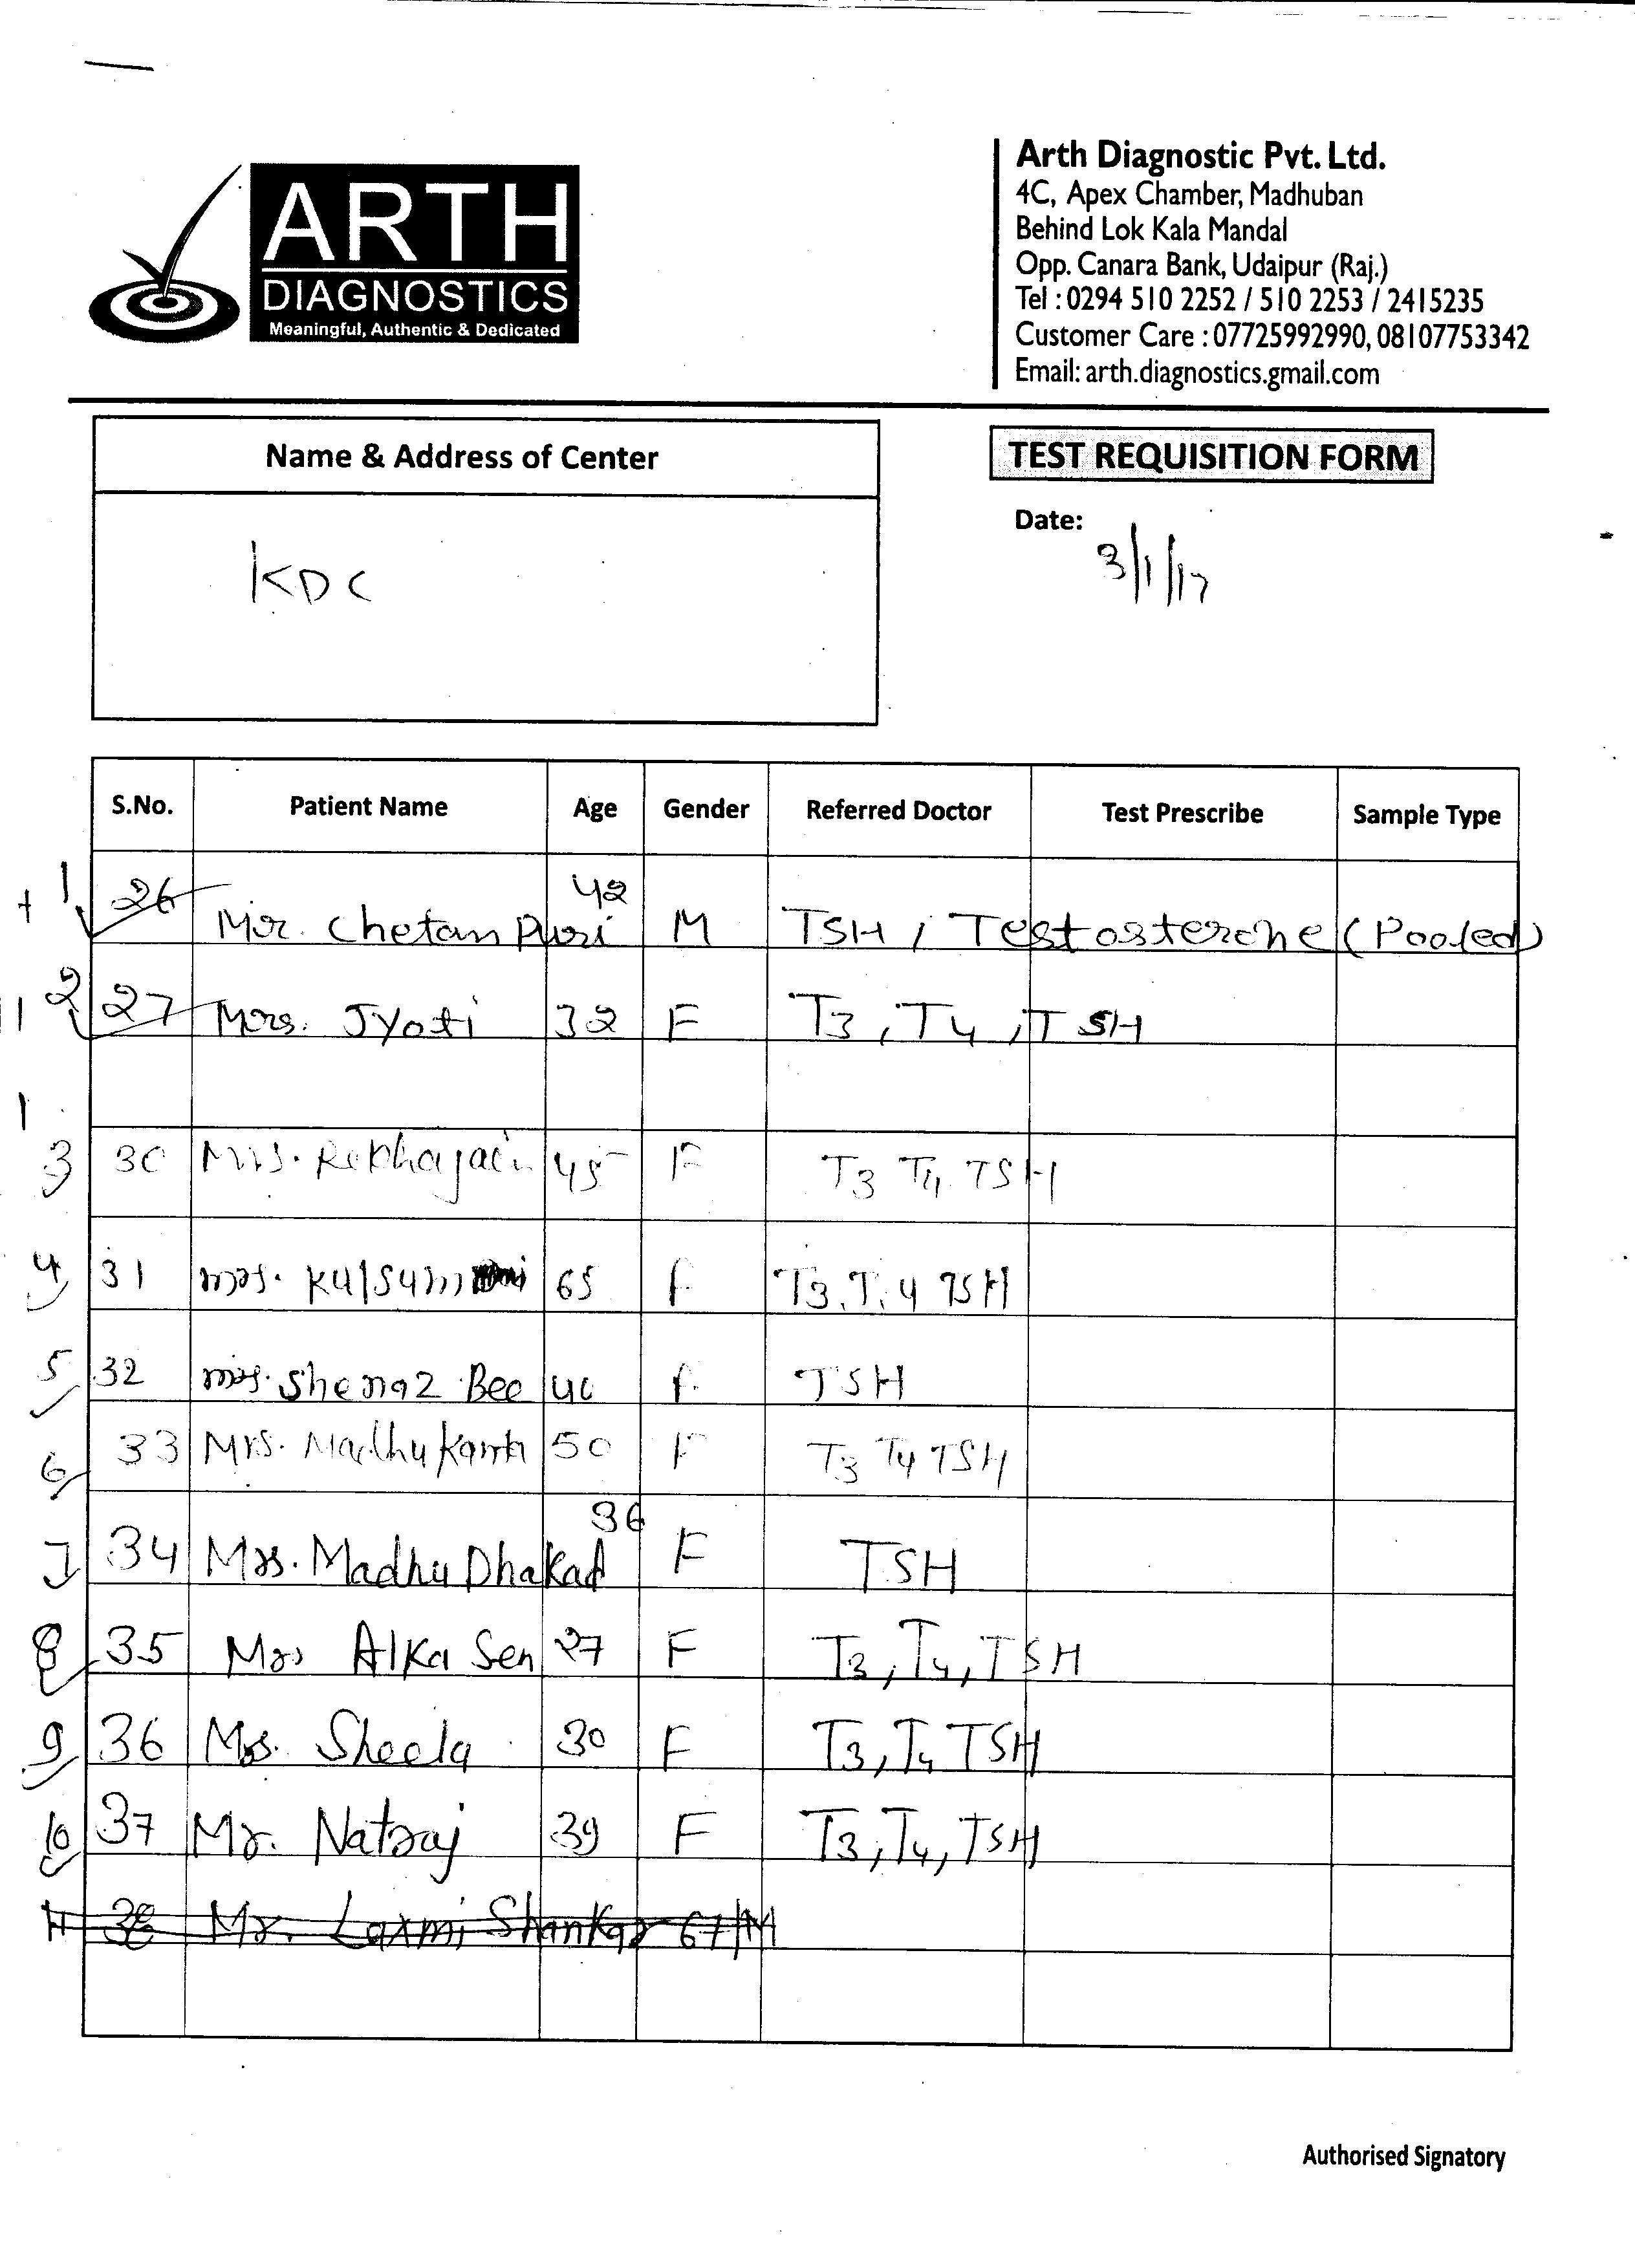 ARTH
DIAGNOSTICS
Meaningful, Authentic & Dedicated
Arth Diagnostic Pvt. Ltd.
4C, Apex Chamber, Madhuban
Behind Lok Kala Mandal
Opp. Canara Bank, Udaipur (Raj.)
Tel : 0294 510 2252 / 510 2253 / 2415235
Customer Care : 07725992990, 08107753342
Email: arth.diagnostics.gmail.com
Name & Address of Center
KDC
TEST REQUISITION FORM
Date: 3/1/17
S.No. Patient Name Age Gender Referred Doctor Test Prescribe Sample Type
1 26 Mr. Chetan Puri 42 M TSH, Testosterone (Pooled)
2 27 Mrs. Jyoti 32 F T3, T4, TSH
3 30 Mrs. Rekha jain 45 F T3 T4 TSH
4 31 mrs. Kulsum 65 F T3, T4 TSH
5 32 mrs. Shenaz Bee 40 F TSH
6 33 Mrs. Madhu Kanta 50 F T3 T4 TSH
7 34 Mrs. Madhu Dhakad 36 F TSH
8 35 Mrs Alka Sen 27 F T3, T4, TSH
9 36 Mrs. Sheela 30 F T3, T4 TSH
10 37 Mr. Natraj 39 F T3, T4, TSH
11 38 Mr. Laxmi Shankar 67/M
Authorised Signatory